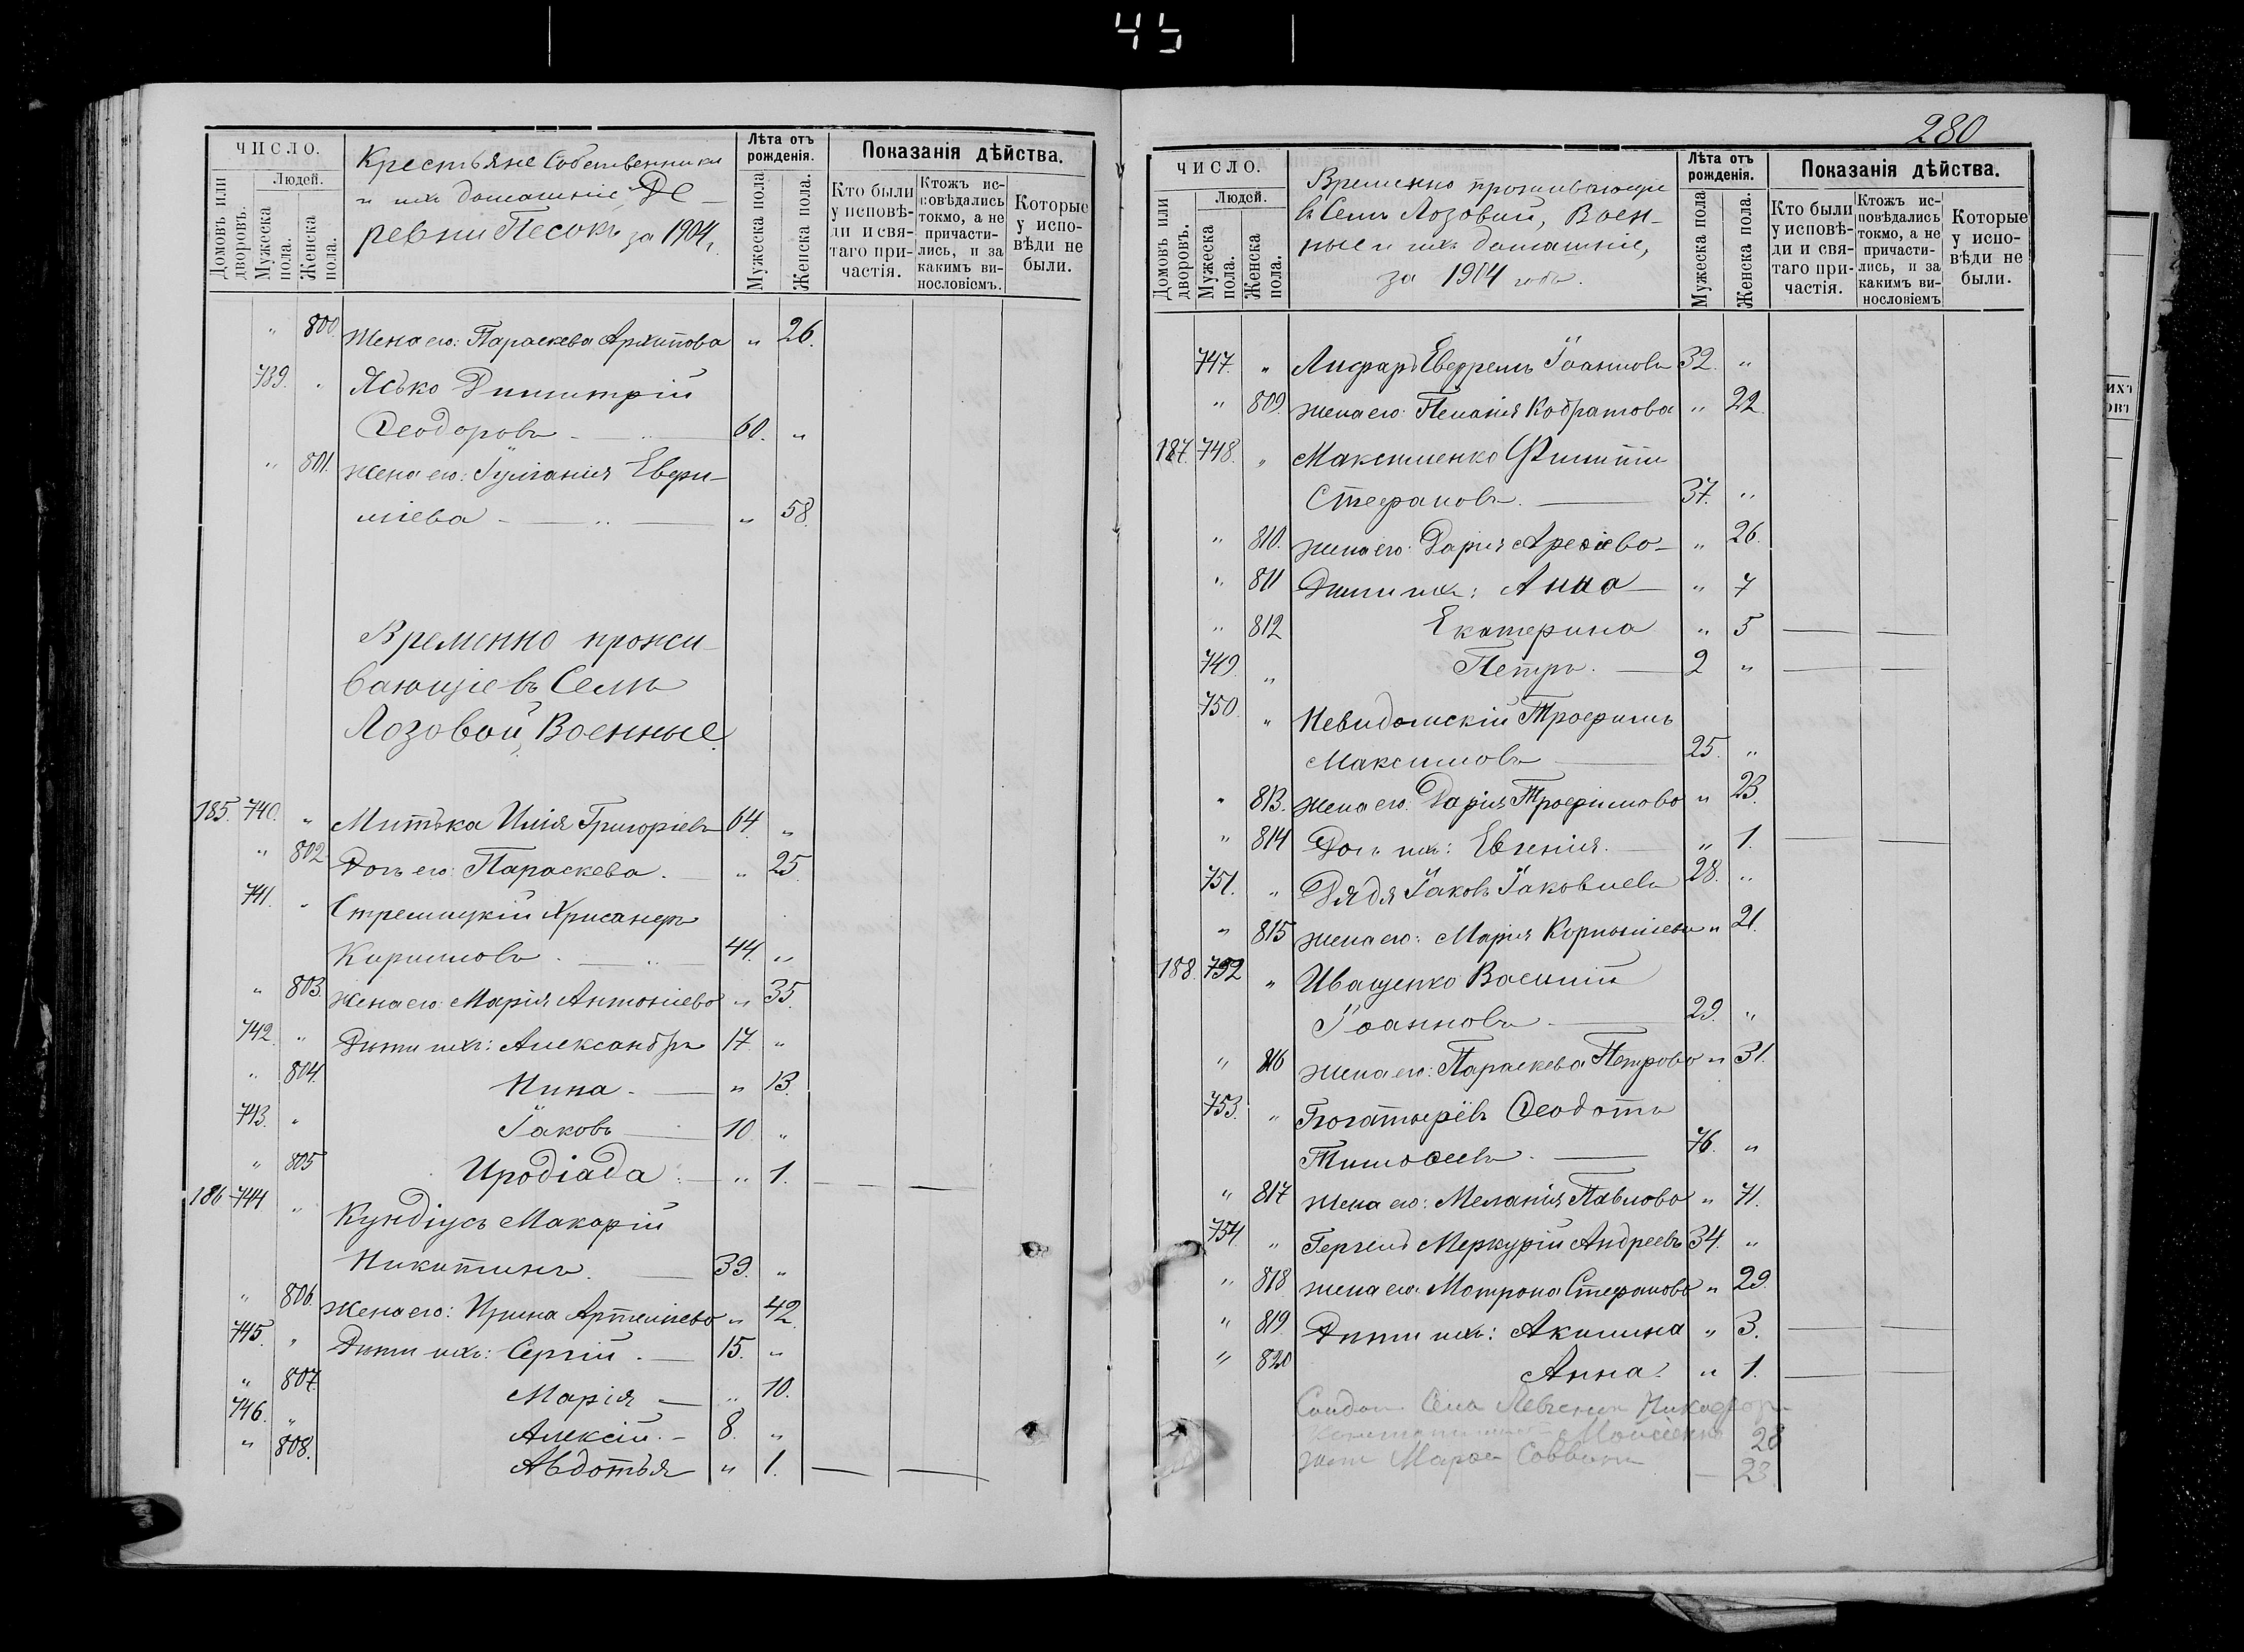 45
ЧИСЛО.
Людей.
Домовъ или дворовъ.
Мужеска пола.
Женска пола.
Крестьяне Собственники
и ихъ домашніе, Де-
ревни Песокъ за 1904 г.
Лѣта отъ рожденія.
Мужеска пола
Женска пола.
Показанія дѣйства.
Кто были у исповѣди и святаго причастія.
Ктожъ исповѣдались токмо, а не причастились, и за какимъ винословіемъ.
Которые у исповѣди не были.
" 800. Жена его: Параскева Архипова " 26.
739. " Ясько Димитрій
Ѳеодоровъ - " - 60. "
" 801. Жена его: Іуліанія Евфи-
міева - " - " 58.
Временно прожи-
вающіе въ Селѣ
Лозовой, Военные.
185. 740. " Митька Илія Григоріевъ 64. "
" 802. Дочь его: Параскева. " 25.
741. " Стрелицкій Хрисанфъ
Кирилловъ. - " - 44. "
" 803. Жена его: Марія Антоніева " 35.
742. " Дѣти ихъ: Александръ 17. "
" 804. Нина. - " 13.
743. " Іаковъ - 10. "
" 805 Иродіада. - " 1. — —
186 744 " Кундіусъ Макарій
Никитинъ. - 39. "
" 806. Жена его: Ирина Артеміева " 42.
745. " Дѣти ихъ: Сергій. - 15. "
" 807. Марія - " 10.
746. " Алексій. - 8. "
" 808. Авдотья " 1. — —
280
ЧИСЛО.
Людей.
Домовъ или дворовъ.
Мужеска пола.
Женска пола.
Временно проживающіе
въ Селѣ Лозовой, Воен-
ные и ихъ домашніе,
за 1904 годъ.
Лѣта отъ рожденія.
Мужеска пола
Женска пола.
Показанія дѣйства.
Кто были у исповѣди и святаго причастія.
Ктожъ исповѣдались токмо, а не причастились, и за какимъ винословіемъ
Которые у исповѣди не были.
747. " Евфремъ Іоанновъ 32. "
" 809. жена его: Пелагія Кодратова " 22.
187. 748. " Максименко Филиппъ
Стефановъ. - 37. "
" 810. жена его: Дарія " 26.
" 811 Дѣти ихъ: Анна - " 7
" 812 Екатерина " 5 — —
749. " Петръ. - 2 " — —
750. " Невидомскій Трофимъ
Максимовъ - 25. "
" 813. жена его: Дарія Трофимова " 23.
" 814 Дочь ихъ: Евгенія. - " 1. — —
751. " Дядя Іаковъ Іаковлевъ 28. "
" 815 жена его: Марія Корниліева " 21.
188. 752 " Иващенко Василій
Іоанновъ - 29. "
" 816 жена его: Параскева Петрова " 31.
753. " Богатырёвъ Ѳеодотъ
Тимоѳеевъ. - 76. "
" 817 жена его: Меланія Павлова " 71.
754. " Меркурій Андреевъ 34. "
" 818 жена его: Матрона Стефанова " 29.
" 819. Дѣти ихъ: Акилина " 3. — —
" 820 Анна. " 1. — —
Никифоръ
28
Савви
— 23